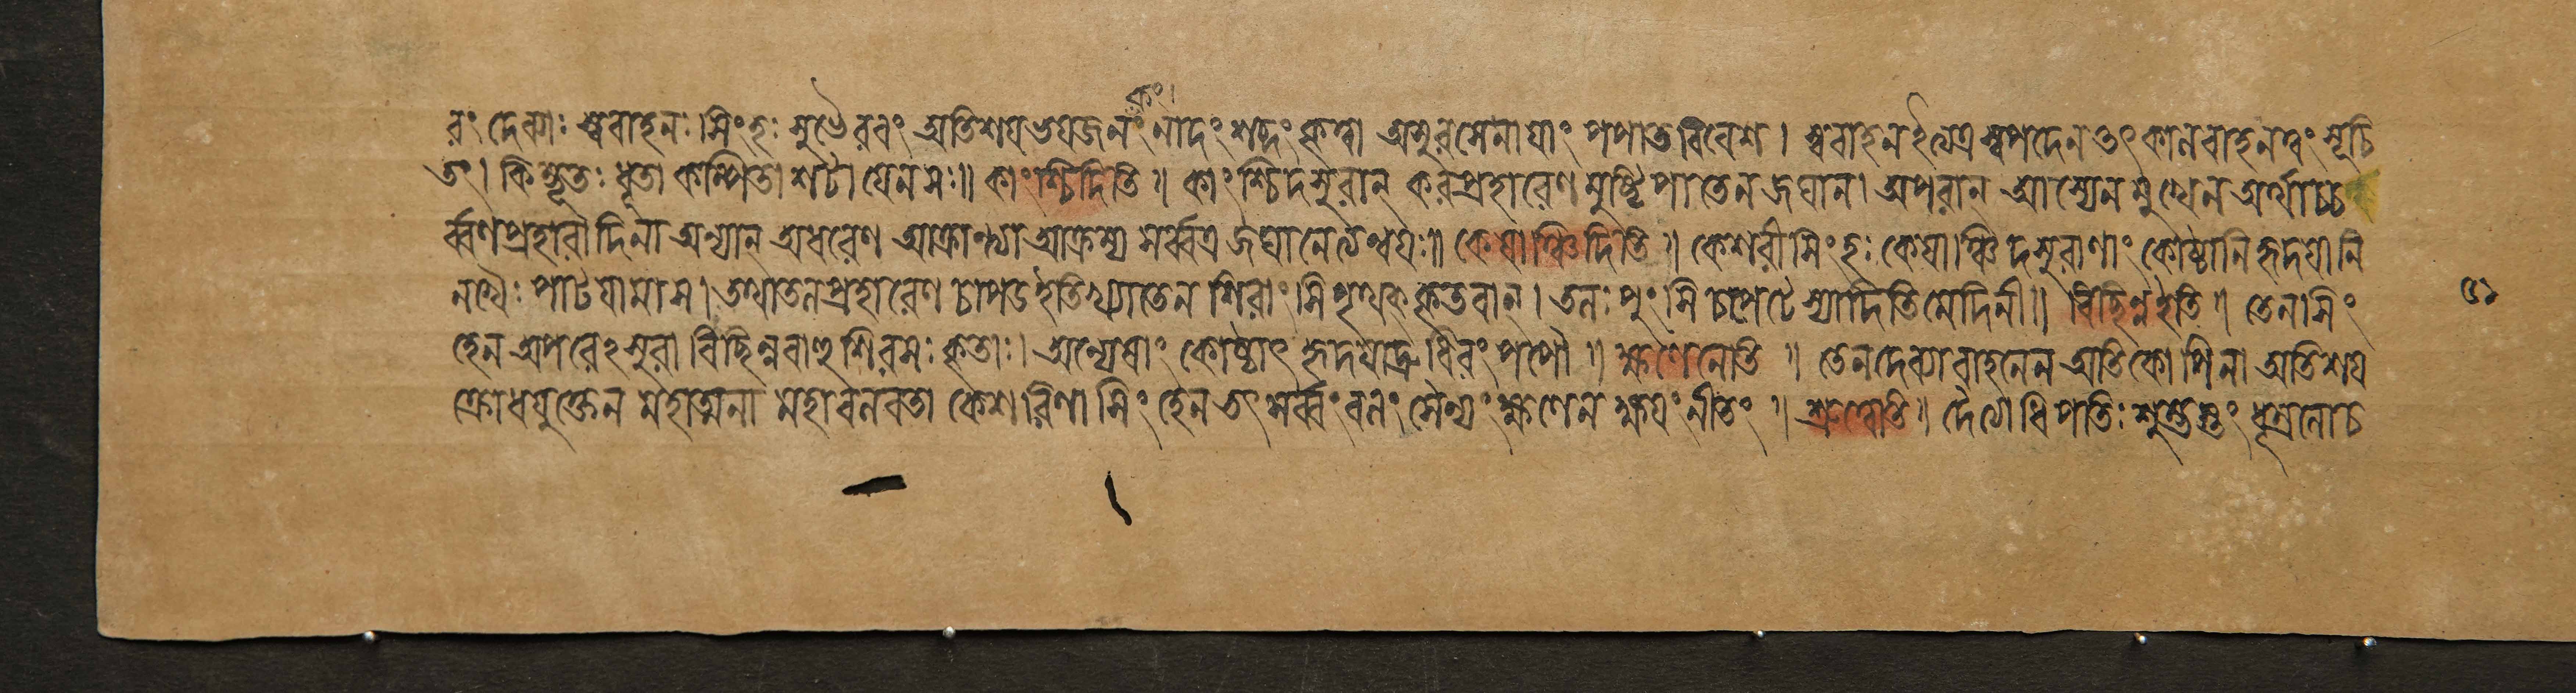 কং।
রং দেব্যাঃ স্ববাহনঃ সিংহঃ সুভৈরবং অতিশয়ভয়জনং নাদং শব্দং কৃত্বা অসুরসেনায়াং পপাত বিবেশ। স্ববাহন ইত্যত্র স্বপদেন তৎকালবাহনত্বং সূচি
তং। কিম্ভূতঃ ধূতা কম্পিতা শটা যেন সঃ॥ কাংশ্চিদিতি॥ কাংশ্চিদসুরান্ করপ্রহারেণ মুষ্টিপাতেন জঘান। অপরান্ আস্যেন মুখেন অর্থাচ্চ
র্ব্বণপ্রহারাদিনা অন্যান্ অধরেণ আক্রান্ত্যা আক্রম্য সর্ব্বত্র জঘানেত্যন্বয়ঃ॥ কেষাঞ্চিদিতি॥ কেশরী সিংহঃ কেষাঞ্চিদসুরাণাং কোষ্ঠানি হৃদয়ানি
নখৈঃ পাটয়ামাস। তথা তলপ্রহারেণ চাপড ইতি খ্যাতেন শিরাংসি পৃথক্ কৃতবান্। তলঃ পুংসি চপেটে স্যাদিতি মেদিনী॥ বিচ্ছিন্ন ইতি॥ তেন সিং
হেন অপরেঽসুরা বিছিন্নবাহুশিরসঃ কৃতাঃ। অন্যেষাং কোষ্ঠাৎ হৃদয়াদ্রুধিরং পপৌ॥ ক্ষণেনেতি॥ তেন দেব্যা বাহনেন অতিকোপিনা অতিশয়
ক্রোধযুক্তেন মহাত্মনা মহাবলবতা কেশরিণা সিংহেন তৎ সর্ব্বং বলং সৈন্যং ক্ষণেন ক্ষয়ং নীতং॥ শ্রুত্বেতি॥ দৈত্যাধিপতিঃ শুম্ভস্তং ধূম্রলোচ
৫১